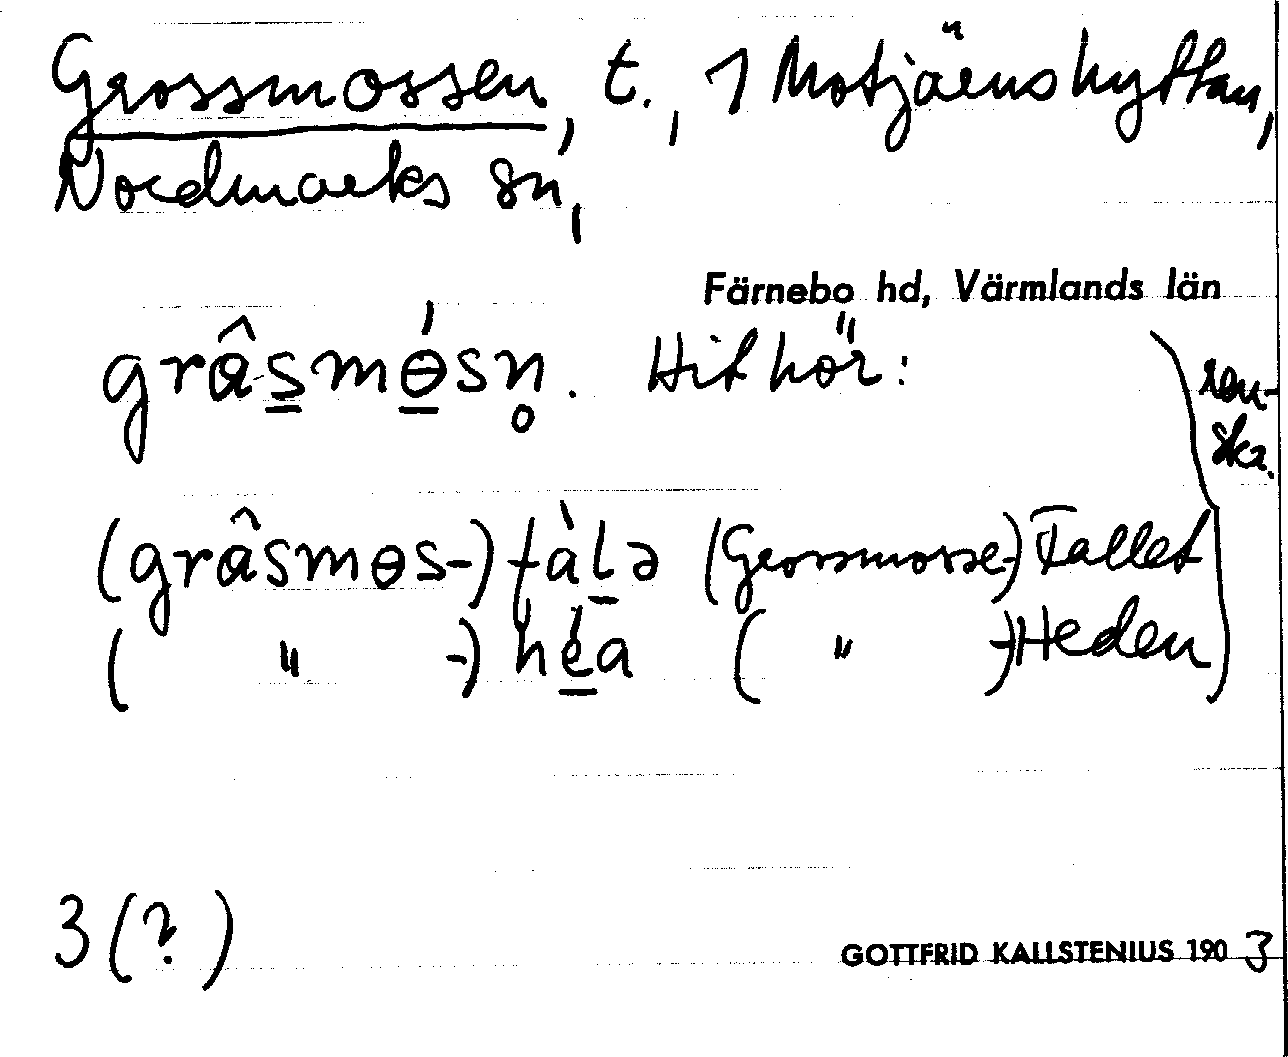 Grossmossen, t., 1 Motjärnshyttan,
Nordmarks sn,
Färnebo hd, Värmlands län
grâs̲mɵ̲́sn̥. Hit hör:
(grâsmɵs-) tàl̲ə (Grossmosse-) Tallet
( " -) hé̲a ( " -) Heden
3 (?)
GOTTFRID KALLSTENIUS 1903